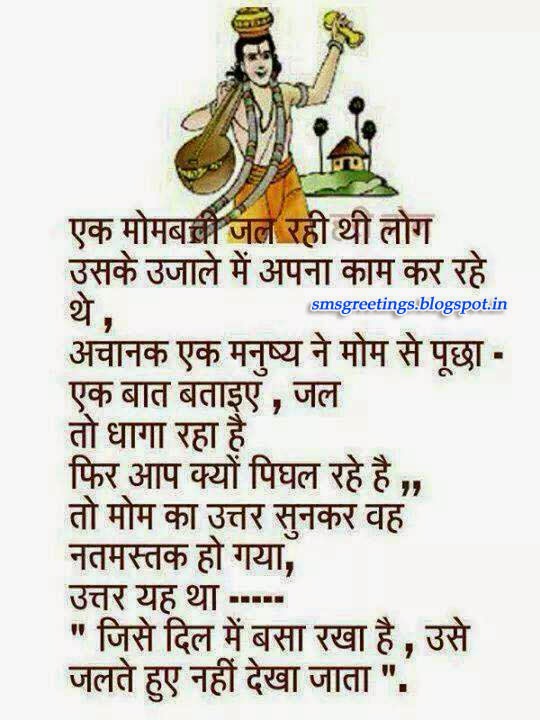 एक मोमबत्ती जल रही थी लोग
उसके उजाले में अपना काम कर रहे
थे ,
smsgreetings.blogspot.in
अचानक एक मनुष्य ने मोम से पूछा -
एक बात बताइए , जल
तो धागा रहा है
फिर आप क्यों पिघल रहे है ,,
तो मोम का उत्तर सुनकर वह
नतमस्तक हो गया,
उत्तर यह था -----
" जिसे दिल में बसा रखा है , उसे
जलते हुए नहीं देखा जाता ".